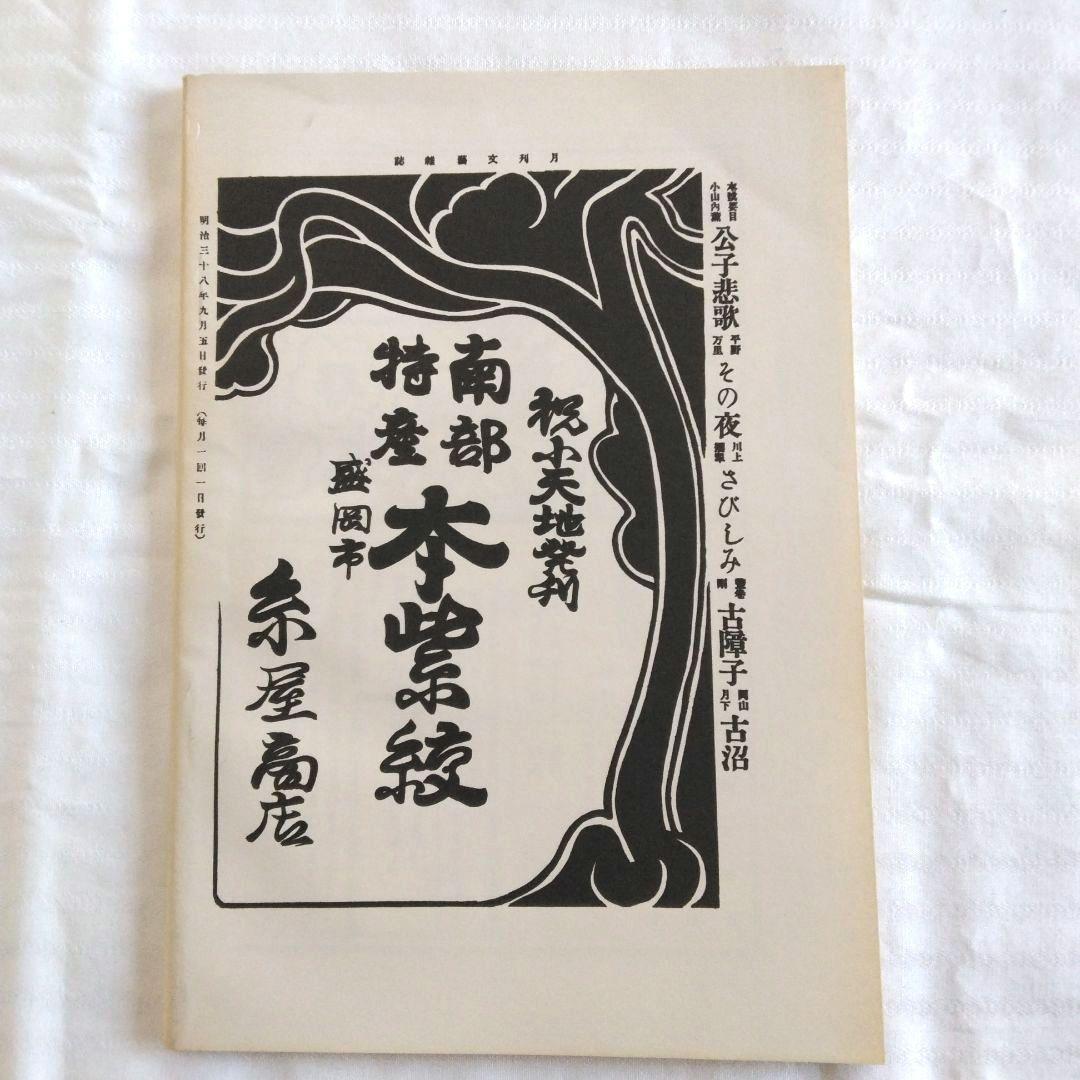 月刊文藝雜誌
本號要目 小山内薫 公子悲歌 平野万里 その夜 川上 さびしみ 古障子 月下 古沼
祝小天地発刊
南部
特産
本紫絞
盛岡市
糸屋商店
明治三十八年九月五日發行(毎月一回一日發行)